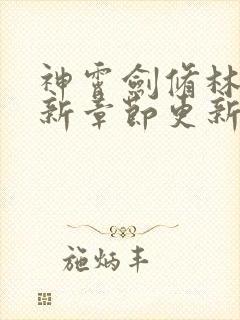 神霄劍脩林
新章節更新
施炳丰